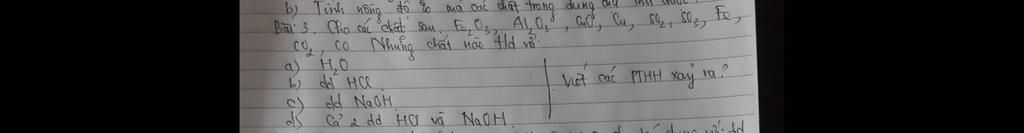 b) Tính nồng độ % của các chất trong dung dịch thu được.
Bài 3. Cho các chất sau: Fe2O3, Al2O3, CuO, Cu, SO2, SO3, Fe,
CO2, CO Những chất nào t/d với:
a) H2O
b) dd HCl
c) dd NaOH
d) Cả 2 dd HCl và NaOH.
Viết các PTHH xảy ra?